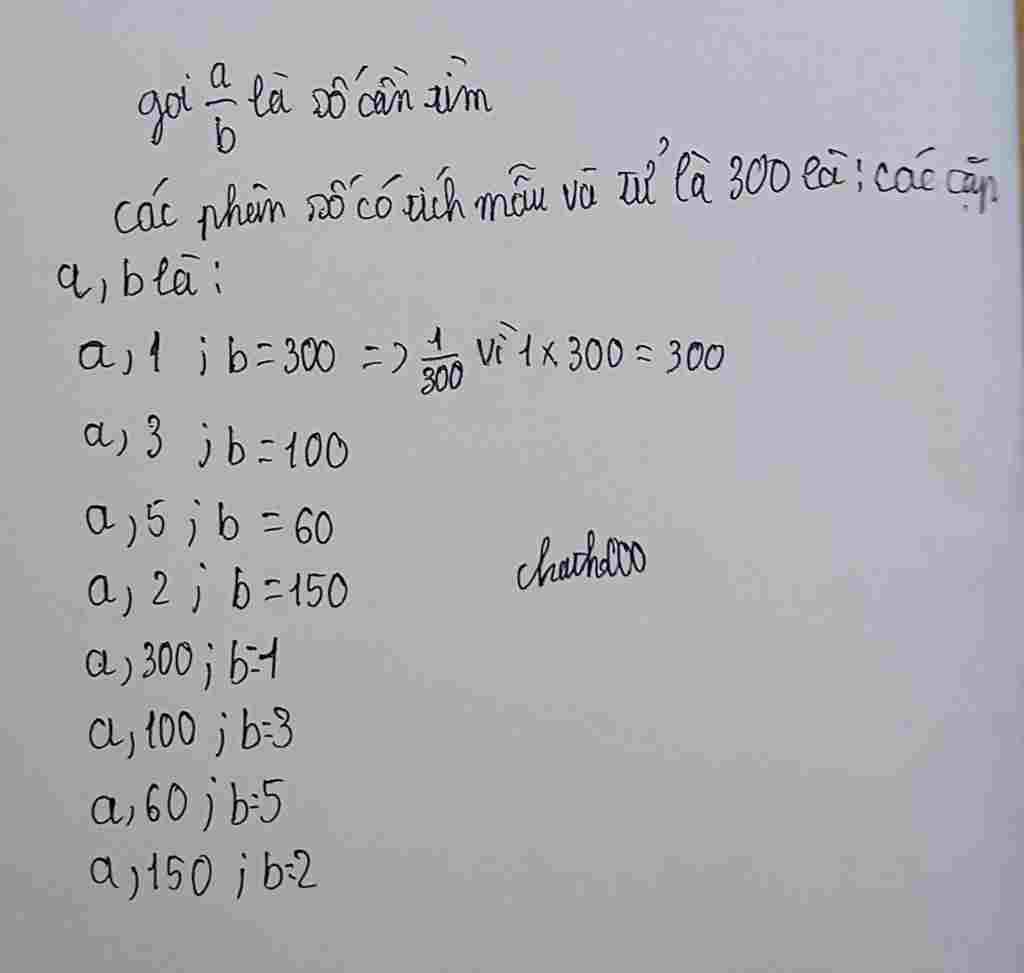 gọi a/b là số cần tìm
các phân số có tích mẫu và tử là 300 là: các cặp
a, b là:
a, 1 ; b = 300 => 1/300 vì 1 x 300 = 300
a, 3 ; b = 100
a, 5 ; b = 60
a, 2 ; b = 150
a, 300 ; b = 1
a, 100 ; b = 3
a, 60 ; b = 5
a, 150 ; b = 2